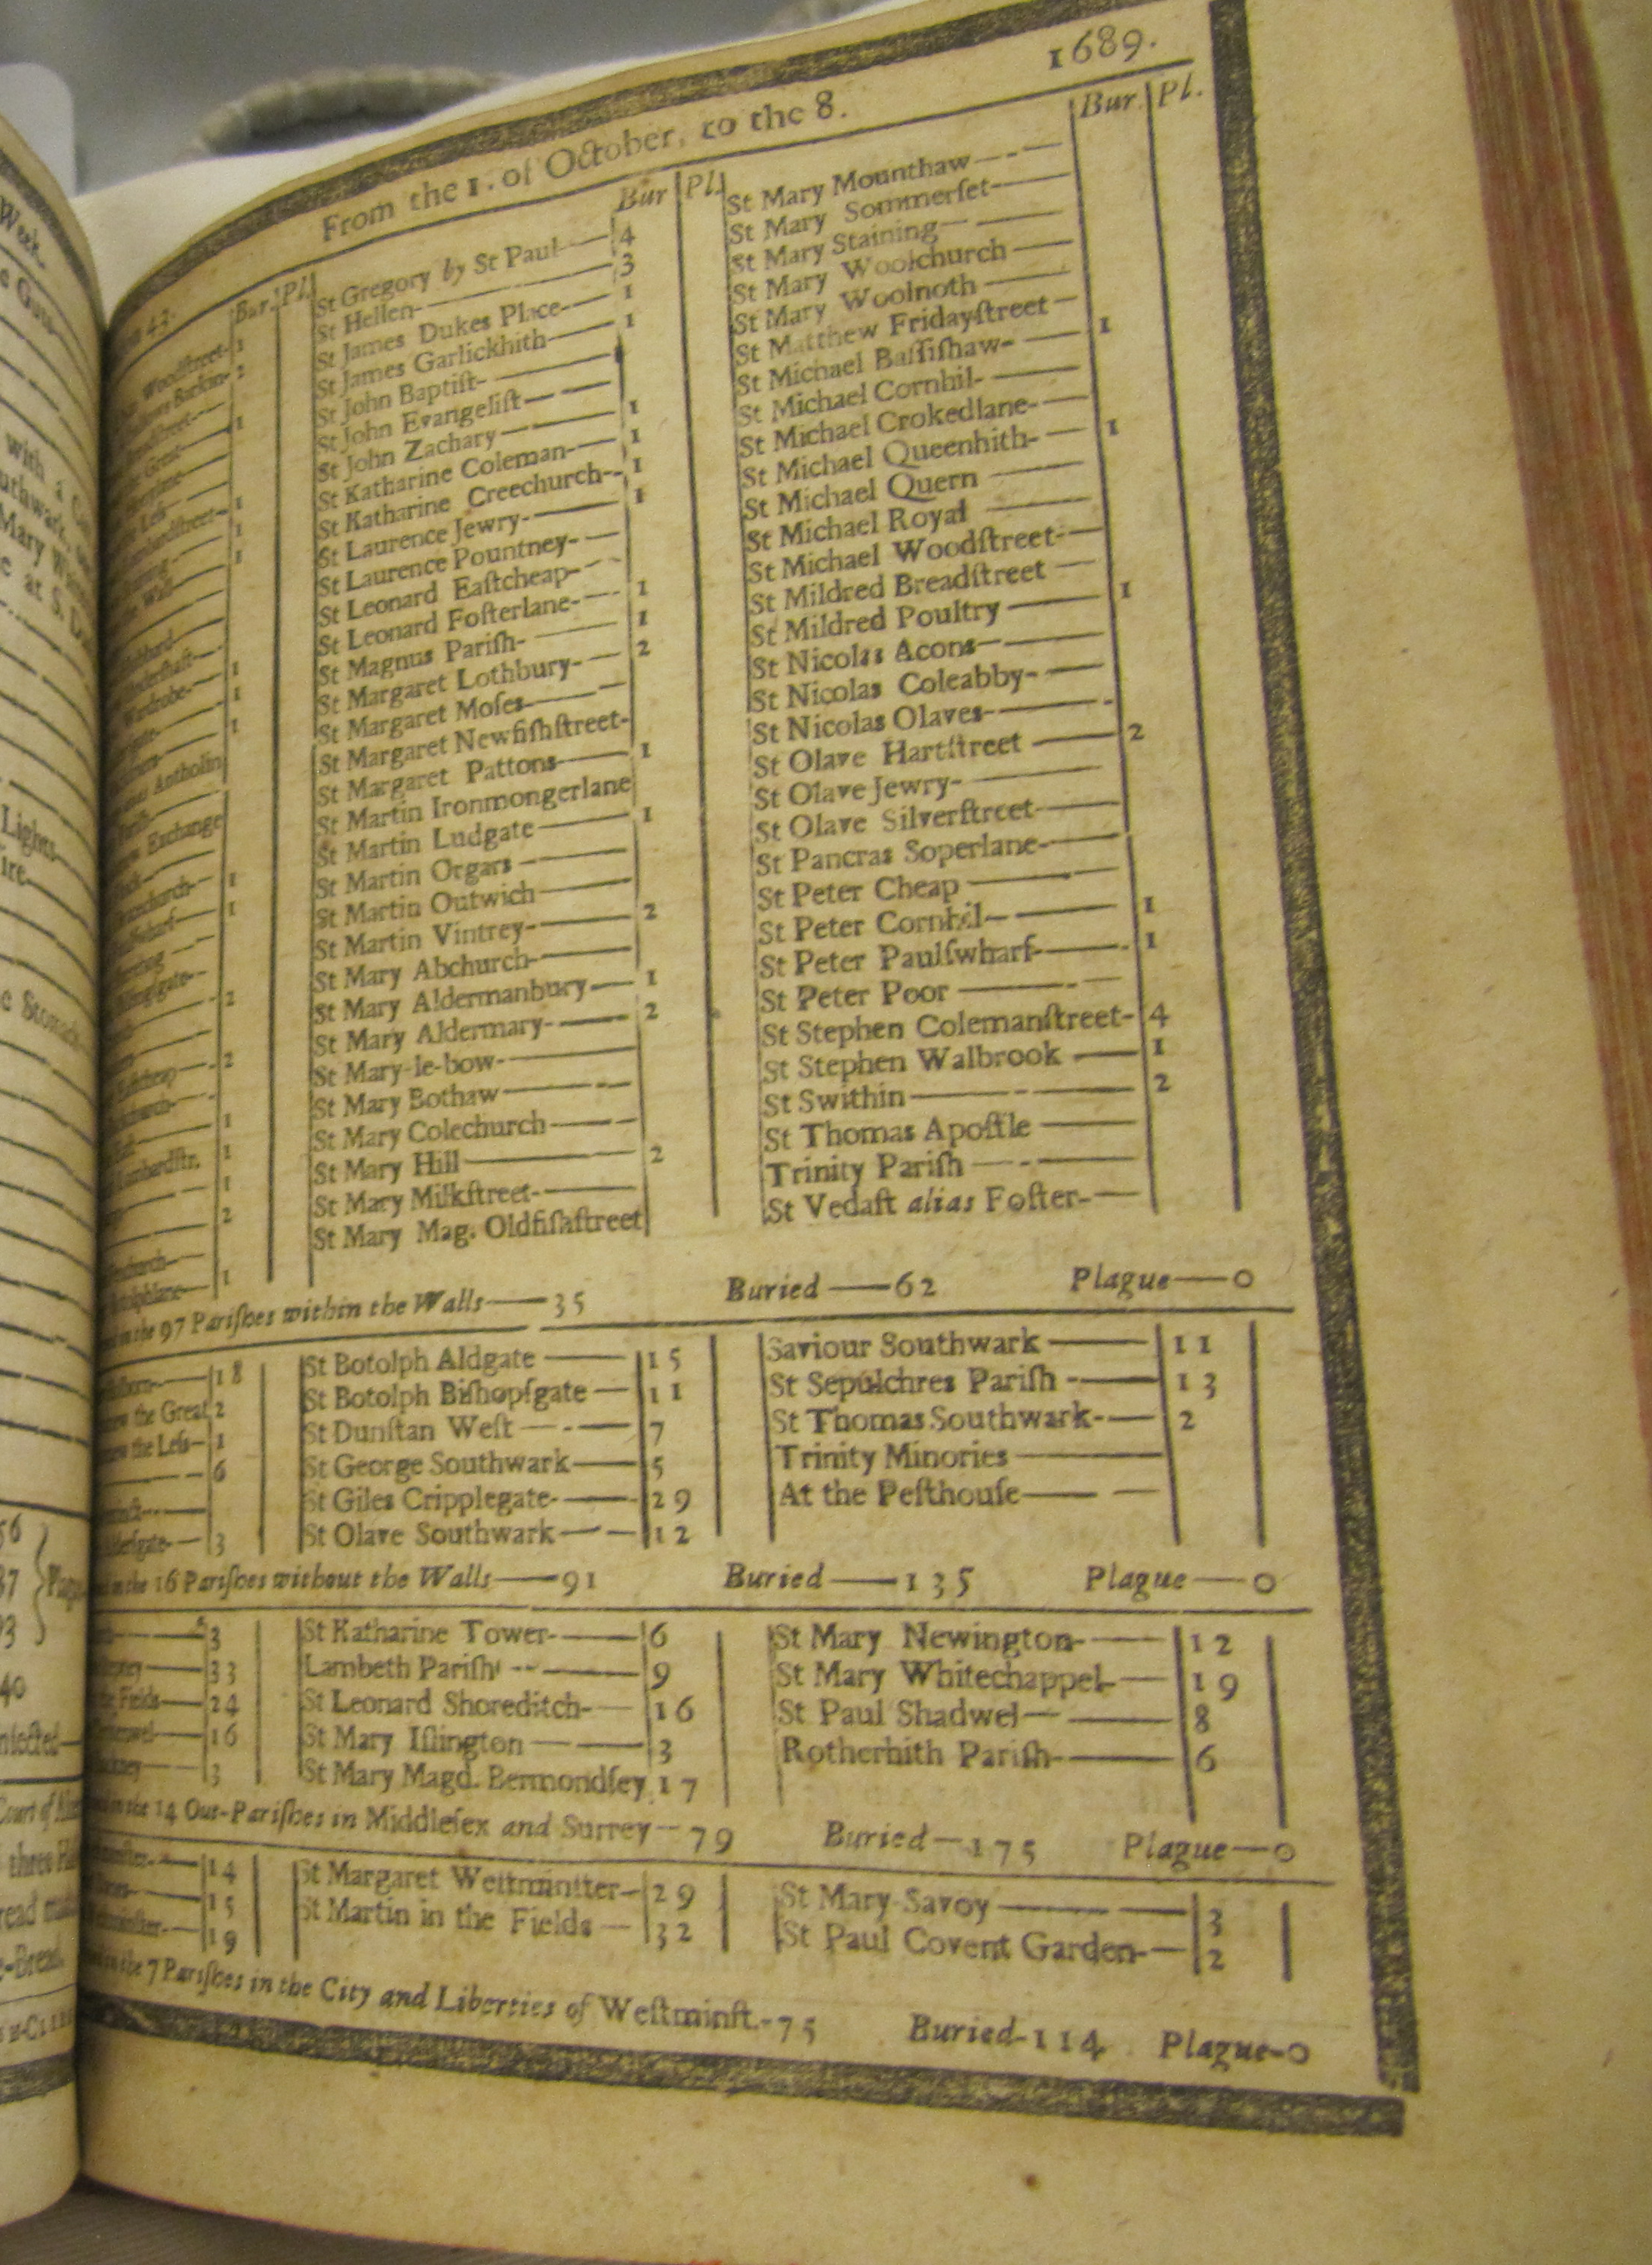 1689.
From the 1. of October, to the 8.
43.
Bur. Pl.
Woodſtreet- 1
Barkin- 2
1
1
1
1
Wardrobe- 1
1
1
Antholin
Exchange
1
1
2
2
1
Lombardſtr. 1
1
2
1
Bur Pl.
St Gregory by St Paul— 4
St Hellen— 3
St James Dukes Place— 1
St James Garlickhith— 1
St John Baptiſt-—
St John Evangeliſt——
St John Zachary—— 1
St Katharine Coleman-— 1
St Katharine Creechurch-- 1
St Laurence Jewry-— 1
St Laurence Pountney-—
St Leonard Eaſtcheap-
St Leonard Foſterlane-— 1
St Magnus Pariſh-— 1
St Margaret Lothbury-— 2
St Margaret Moſes——
St Margaret Newfiſhſtreet-
St Margaret Pattons— 1
St Martin Ironmongerlane
St Martin Ludgate— 1
St Martin Orgars—
St Martin Outwich—
St Martin Vintrey-— 2
St Mary Abchurch-—
St Mary Aldermanbury— 1
St Mary Aldermary-— 2
St Mary-le-bow-—
St Mary Bothaw—
St Mary Colechurch—
St Mary Hill— 2
St Mary Milkſtreet-—
St Mary Mag. Oldfiſhſtreet
Bur. Pl.
St Mary Mounthaw—
St Mary Sommerſet-—
St Mary Staining—
St Mary Woolchurch—
St Mary Woolnoth—
St Matthew Fridayſtreet—
St Michael Baſſiſhaw-— 1
St Michael Cornhil-—
St Michael Crokedlane-—
St Michael Queenhith-— 1
St Michael Quern—
St Michael Royal—
St Michael Woodſtreet-—
St Mildred Breadſtreet—
St Mildred Poultry— 1
St Nicolas Acons—
St Nicolas Coleabby-—
St Nicolas Olaves-—
St Olave Hartſtreet— 2
St Olave Jewry-—
St Olave Silverſtreet—
St Pancras Soperlane-—
St Peter Cheap—
St Peter Cornhil— 1
St Peter Paulſwharf-— 1
St Peter Poor—
St Stephen Colemanſtreet- 4
St Stephen Walbrook— 1
St Swithin— 2
St Thomas Apoſtle—
Trinity Pariſh—
St Vedaſt alias Foſter-—
in the 97 Pariſhes within the Walls—35 Buried—62 Plague—0
18
the Great 2
the Leſs— 1
6
3
St Botolph Aldgate— 15
St Botolph Biſhopſgate— 11
St Dunſtan Weſt— 7
St George Southwark— 5
St Giles Cripplegate-— 29
St Olave Southwark— 12
Saviour Southwark— 11
St Sepulchres Pariſh-— 13
St Thomas Southwark-— 2
Trinity Minories—
At the Peſthouſe—
in the 16 Pariſhes without the Walls—91 Buried—135 Plague—0
3
33
Fields— 24
16
3
St Katharine Tower-— 6
Lambeth Pariſh— 9
St Leonard Shoreditch-— 16
St Mary Iſlington— 3
St Mary Magd. Bermondſey 17
St Mary Newington-— 12
St Mary Whitechappel— 19
St Paul Shadwel— 8
Rotherhith Pariſh-— 6
in the 14 Out-Pariſhes in Middleſex and Surrey—79 Buried—175 Plague—0
14
15
19
St Margaret Weſtminſter— 29
St Martin in the Fields— 32
St Mary Savoy— 3
St Paul Covent Garden-— 2
in the 7 Pariſhes in the City and Liberties of Weſtminſt.-75 Buried-114 Plague-0